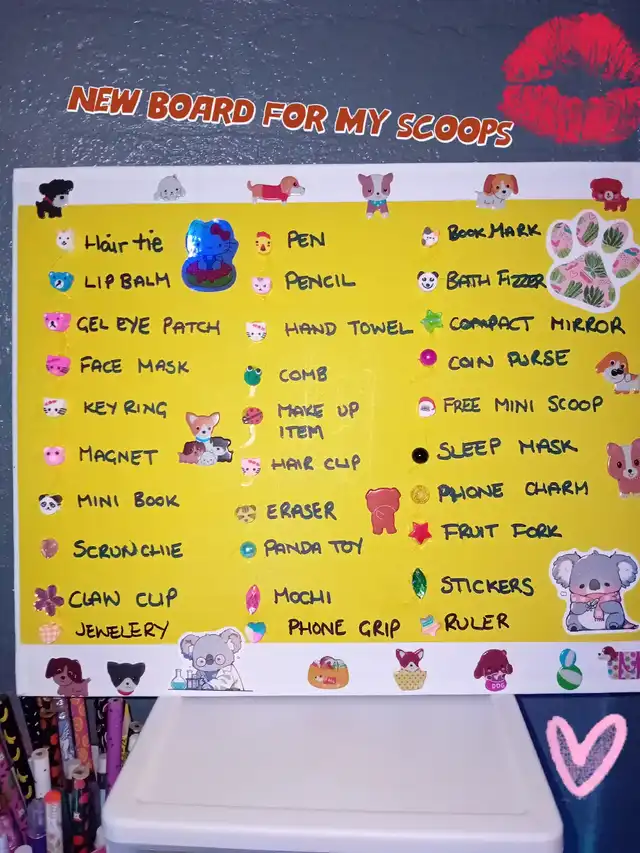 NEW BOARD FOR MY SCOOPS
Hair tie
LIP BALM
GEL EYE PATCH
FACE MASK
KEY RING
MAGNET
MINI BOOK
SCRUNCHIE
CLAW CLIP
JEWELERY
PEN
PENCIL
HAND TOWEL
COMB
MAKE UP
ITEM
HAIR CLIP
ERASER
PANDA TOY
MOCHI
PHONE GRIP
BOOK MARK
BATH FIZZER
COMPACT MIRROR
COIN PURSE
FREE MINI SCOOP
SLEEP MASK
PHONE CHARM
FRUIT FORK
STICKERS
RULER
DOG